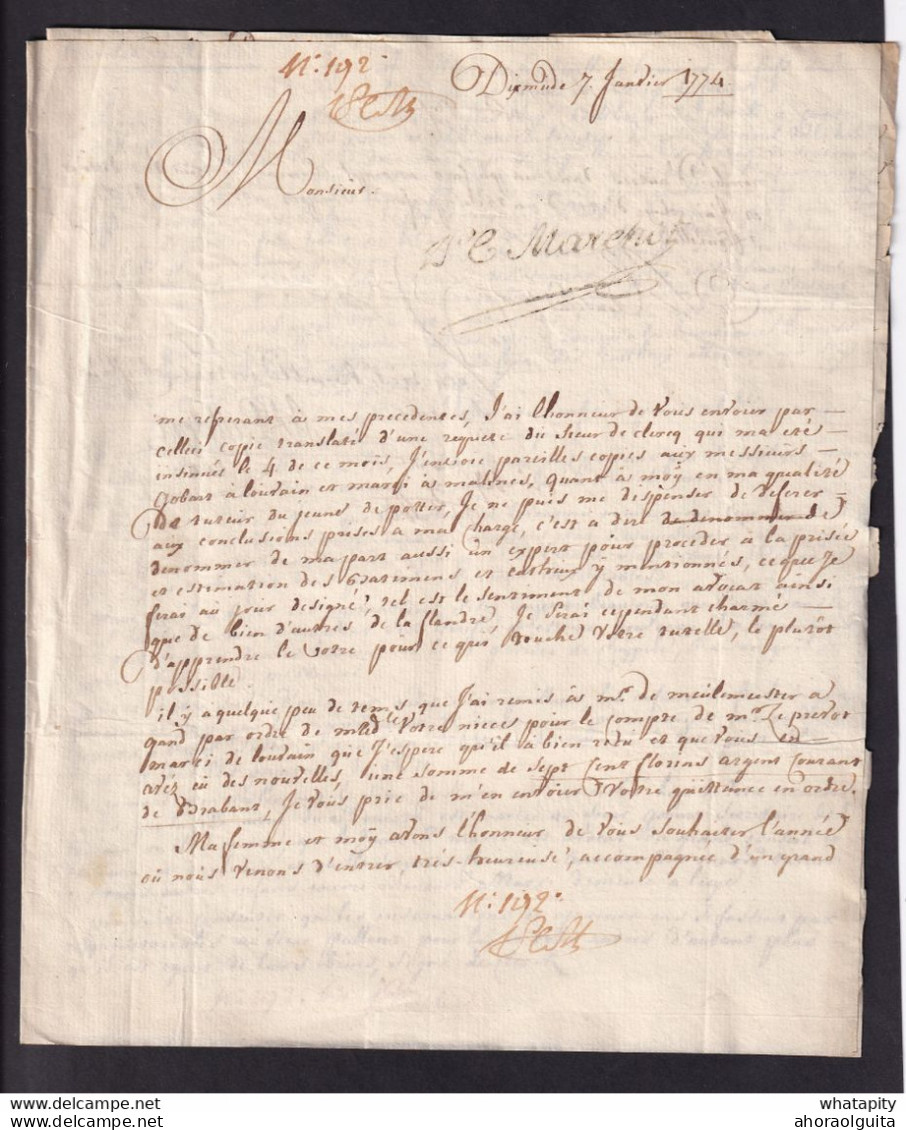 N.º 192.
Dixmude 7. Janvier 1774.
Monsieur.
me referant à mes precedentes, J'ai l'honneur de vous envoier par
celleci copie translaté d'une requete du Sieur de clercq qui ma eté
insinuée le 4 de ce mois, J'envoie pareilles copies aux messieurs
Gobart à louvain et marci à malines, quant à moÿ en ma qualité
de tuteur du jeune de potter, Je ne puis me dispenser de deferer
aux conclusions prises a ma charge, c'est a dire de denommer de
denommer de ma part aussi un expert pour proceder à la prisée
et estimation des Batimens et catheux y mentionnés, ce que Je
ferai au jour designé, tel est le sentiment de mon avocat ainsi
que de bien d'autres de la flandre, Je serai cependant charmé
d'apprendre le votre pour ce qui touche votre tutelle, le plutôt
possible.
il y a quelque peu de tems que J'ai remis às mr. de meulemeester a
gand par ordre de votre nieces pour le compte de mr. Le prevot
marci de louvain que J'espere qu'il à bien recu et que vous en
avéz eu des nouvelles, une somme de sept Cent florins argent Courant
de Brabant, Je vous prie de m'en envoier votre quittance en ordre.
Ma femme et moÿ avons l'honneur de vous souhaiter l'année
où nous venons d'entrer, très-heureuse, accompagnée d'un grand
N.º 192.
whatapity
ahoraolguita